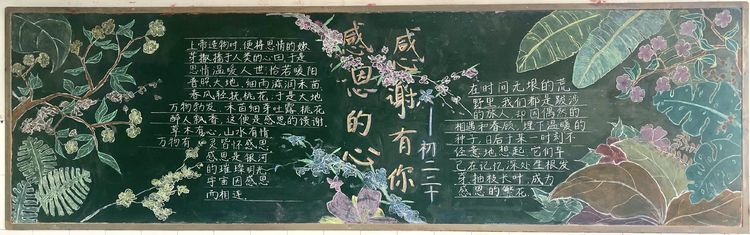 上帝造物时,便将感情的嫩
芽撒播于人类的心田,于是
恩情温暖人世,恰若暖阳
普照大地,细雨滋润禾苗
春风轻抚桃花,于是大地
万物勃发,禾苗细芽吐露,桃花
醉人飘香,这便是感恩的馈谢
草木有心,山水有情
万物有灵皆怀感恩
感恩是银河
的璀璨明光
宇宙因感恩
而相连
感恩的心
感谢有你
——初二二十
在时间无垠的荒
野里,我们都是跋涉
的旅人,却因偶然的
相遇和眷顾,埋下温暖的
种子,日后于某一时刻不
经意地想起,它们早
已在记忆深处生根发
芽,抽枝长叶,成为
感恩的繁花